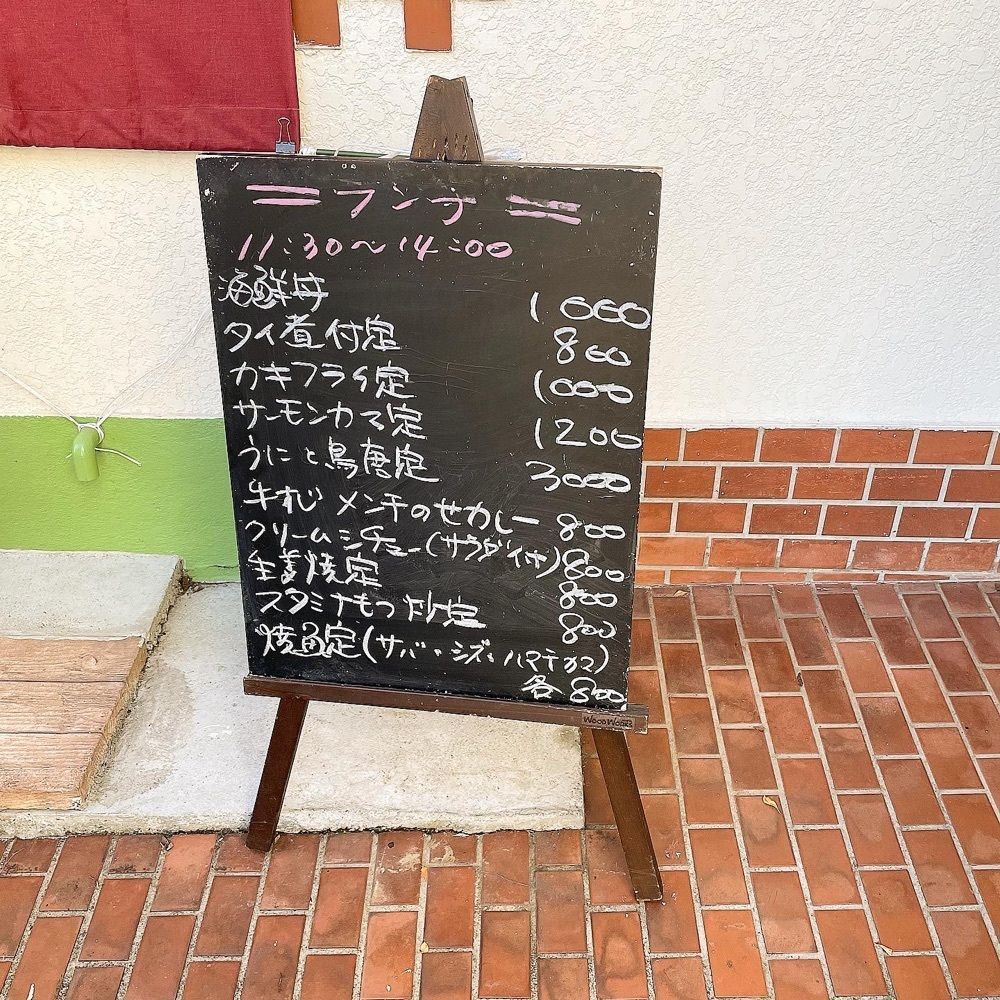 ランチ
11:30～14:00
海鮮丼 1000
タイ煮付定 800
カキフライ定 1000
サーモンカマ定 1200
うにと鳥唐定 3000
牛すじメンチのせカレー 800
クリームシチュー(サラダ付) 800
生姜焼定 800
スタミナもつ炒定 800
焼魚定(サバ・シズ・ハマチカマ)
各 800
WOOD WORKS